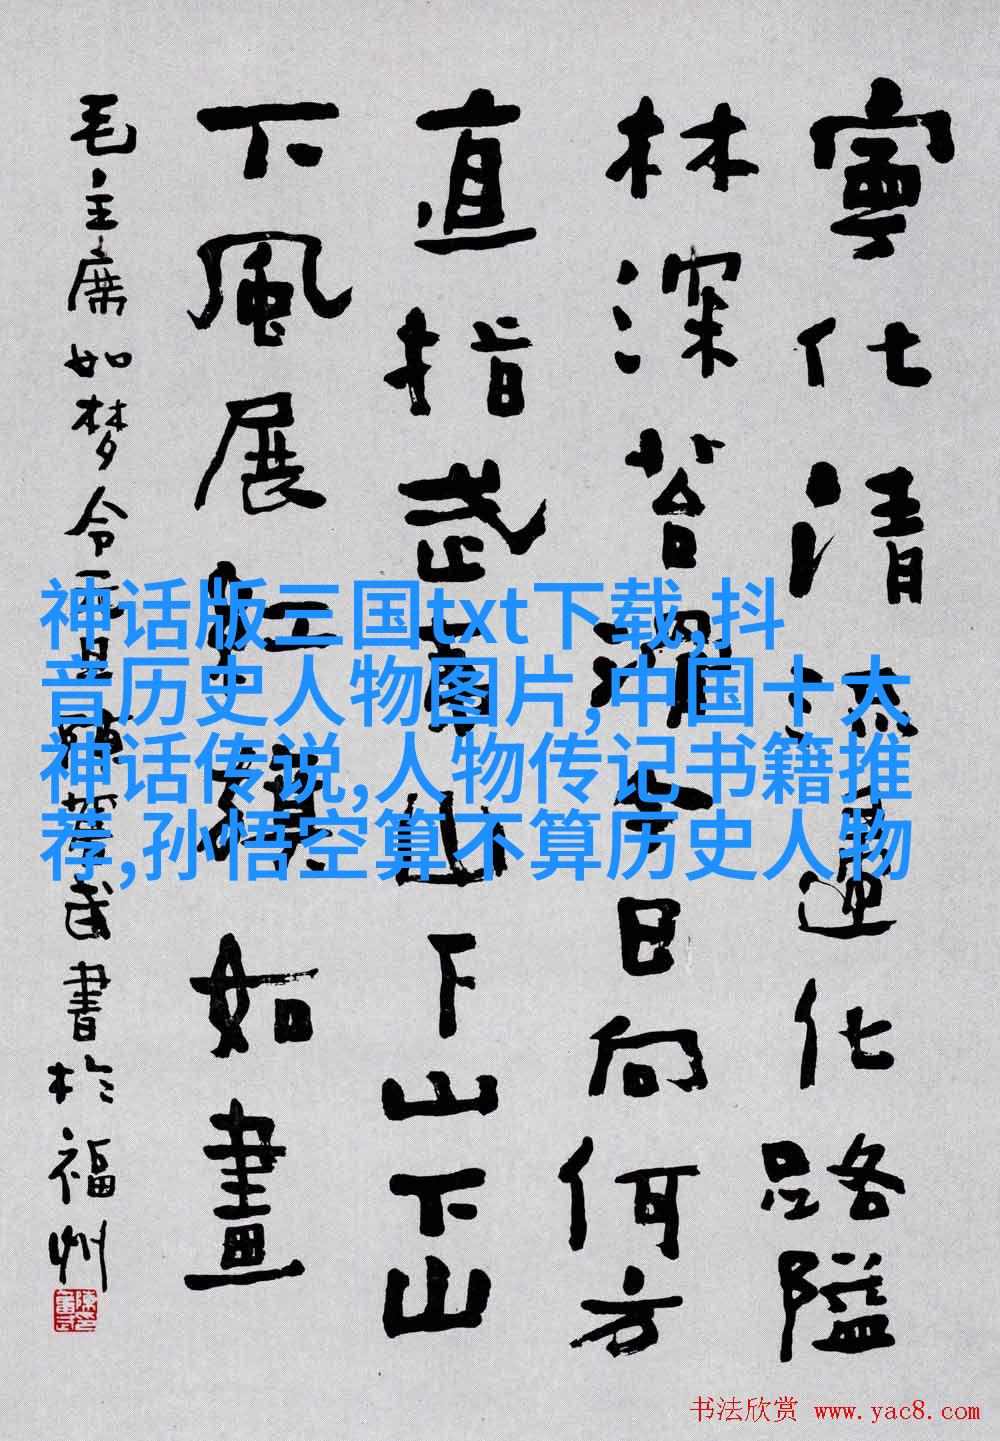 寧化清流歸化路隘
林深苔滑今日向何方
直指武夷山下山下山
下風展紅旗如畫
毛主席如梦令元旦
書於福州
神话版三国txt下载,抖
音历史人物图片,中国十大
神话传说,人物传记书籍推
荐,孙悟空算不算历史人物
书法欣赏 www.yac8.com